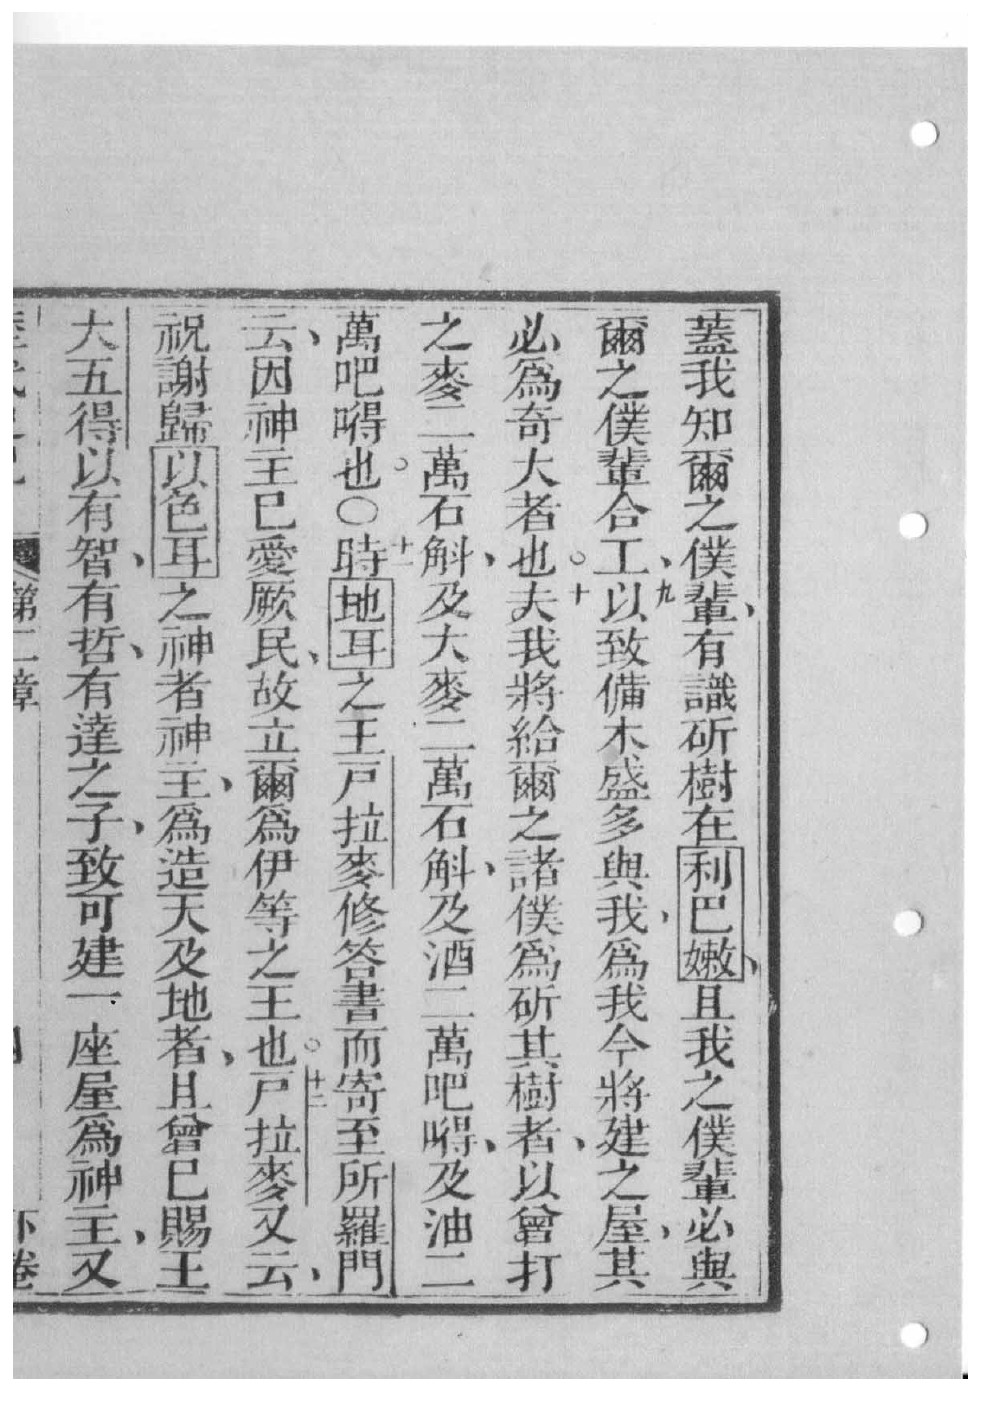 蓋我知爾之僕輩、有識斫樹在利巴嫩、且我之僕輩必與
爾之僕輩合工、九以致備木盛多與我、爲我今將建之屋、其
必爲奇大者也。十夫我將給爾之諸僕爲斫其樹者、以曾打
之麥二萬石斛、及大麥二萬石斛、及酒二萬吧嘚、及油二
萬吧嘚也。〇十一時地耳之王戸拉麥修答書而寄至所羅門
云、因神主已愛厥民、故立爾爲伊等之王也。十二戸拉麥又云、
祝謝歸以色耳之神者神主、爲造天及地者、且曾已賜王
大五得以有智、有哲、有達之子、致可建一座屋爲神主、又
第二章
下卷